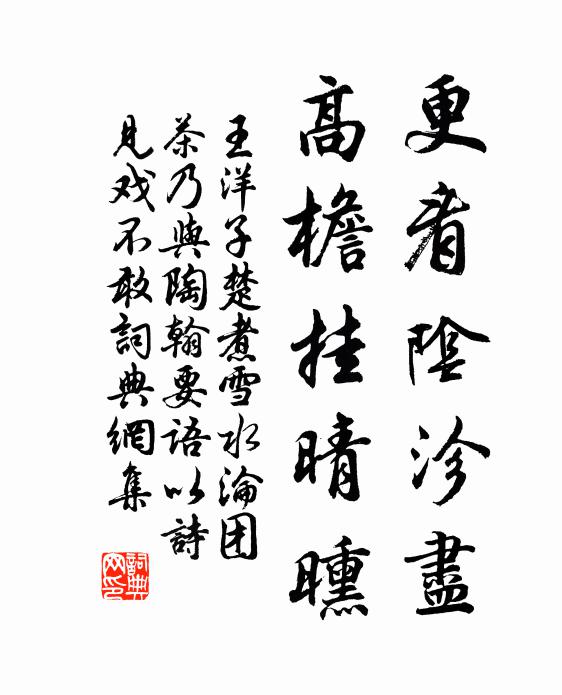 更看陰沴盡
高檐挂晴曛
王洋子楚煮雪水淪团
茶乃與陶翰要語以詩
見戏不敢詞典網集
詞典网印